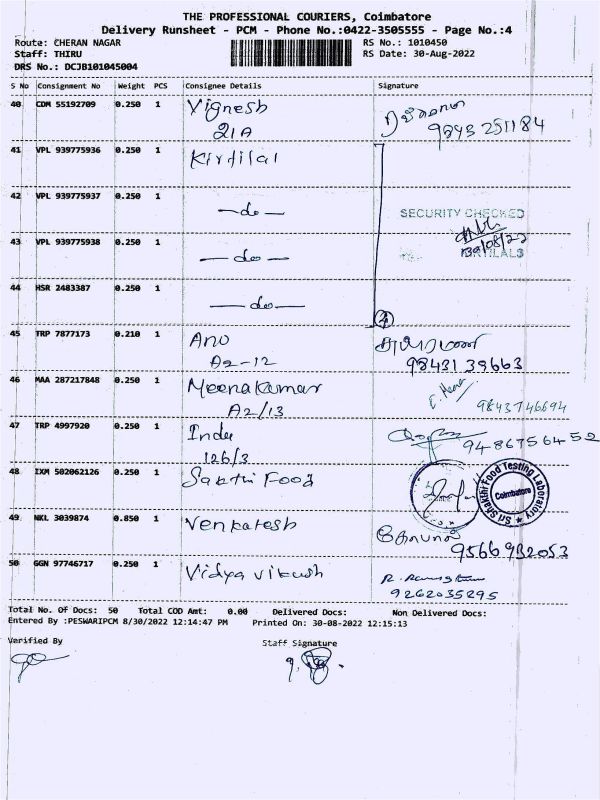 THE PROFESSIONAL COURIERS, Coimbatore
Delivery Runsheet - PCM - Phone No.:0422-3505555 - Page No.:4
Route: CHERAN NAGAR RS No.: 1010450
Staff: THIRU RS Date: 30-Aug-2022
DRS No.: DCJB101045004
S No Consignment No Weight PCS Consignee Details Signature
40 CDM 55192709 0.250 1 Vignesh
21A 9843 251184
41 VPL 939775936 0.250 1 Kirtilal
42 VPL 939775937 0.250 1 —do—
SECURITY CHECKED
43 VPL 939775938 0.250 1 —do— 30/08/22
KIRTILALS
44 HSR 2483387 0.250 1 —do—
4
45 TRP 7877173 0.210 1 Ano
A2-12 98431 39663
46 MAA 287217848 0.250 1 Meenakumar
A2/13 9843746694
47 TRP 4997920 0.250 1 Indu
126/3 9486756452
48 IXM 502062126 0.250 1 Sakthi Food
Sri Shakthi Food Testing Laboratory
Coimbatore
49 NKL 3039874 0.850 1 Venkatesh கோபால்
9566982053
50 GGN 97746717 0.250 1 Vidya vikash
9262035295
Total No. Of Docs: 50 Total COD Amt: 0.00 Delivered Docs: Non Delivered Docs:
Entered By :PESWARIPCM 8/30/2022 12:14:47 PM Printed On: 30-08-2022 12:15:13
Verified By Staff Signature